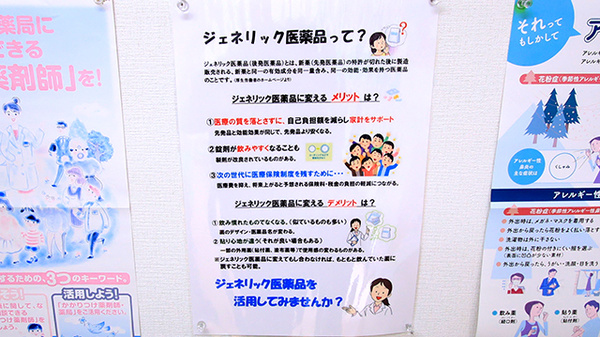 薬局に
できる
薬剤師」を!
するための、3つのキーワード。
活用しよう!
「かかりつけ薬剤師・
薬局」をご活用ください。
ジェネリック医薬品って?
ジェネリック医薬品(後発医薬品)とは、新薬(先発医薬品)の特許が切れた後に製造
販売される、新薬と同一の有効成分を同一量含み、同一の効能・効果を持つ医薬品
のことです。
ジェネリック医薬品に変える メリット は?
①医療の質を落とさずに、自己負担額を減らし家計をサポート
先発品と効能効果が同じで、先発品より安くなる。
②錠剤が飲みやすくなることも
製剤が改良されているものがある。
③次の世代に医療保険制度を残すために・・・
医療費を抑え、将来上がると予想される保険料・税金の負担の軽減につながる。
ジェネリック医薬品に変える デメリット は?
①飲み慣れたものでなくなる。(似ているものも多い)
薬のデザイン・医薬品名が変わる。
②貼り心地が違う(それが良い場合もある)
一部の外用剤(貼付剤、塗布薬等)で使用感の変わるものがある。
※ジェネリック医薬品に変えても合わなければ、もともと飲んでいた薬に
戻すことも可能。
ジェネリック医薬品を
活用してみませんか?
それって
もしかして
アレルギー性
花粉症(季節性アレルギー性
アレルギー性
鼻炎の
主な症状は
くしゃみ
アレルギー性
花粉症(季節性アレルギー性
外出時は、メガネ・マスクを着用する
外出から戻ったら花粉をよく払い落とす
洗濯物は外に干さない
外出時は、花粉の付きにくい服を選ぶ
(表面に凹凸が少ない素材)
外出から戻ったら、うがい・洗顔・目を洗う
飲み薬
(経口剤)
貼り薬
(貼付剤)